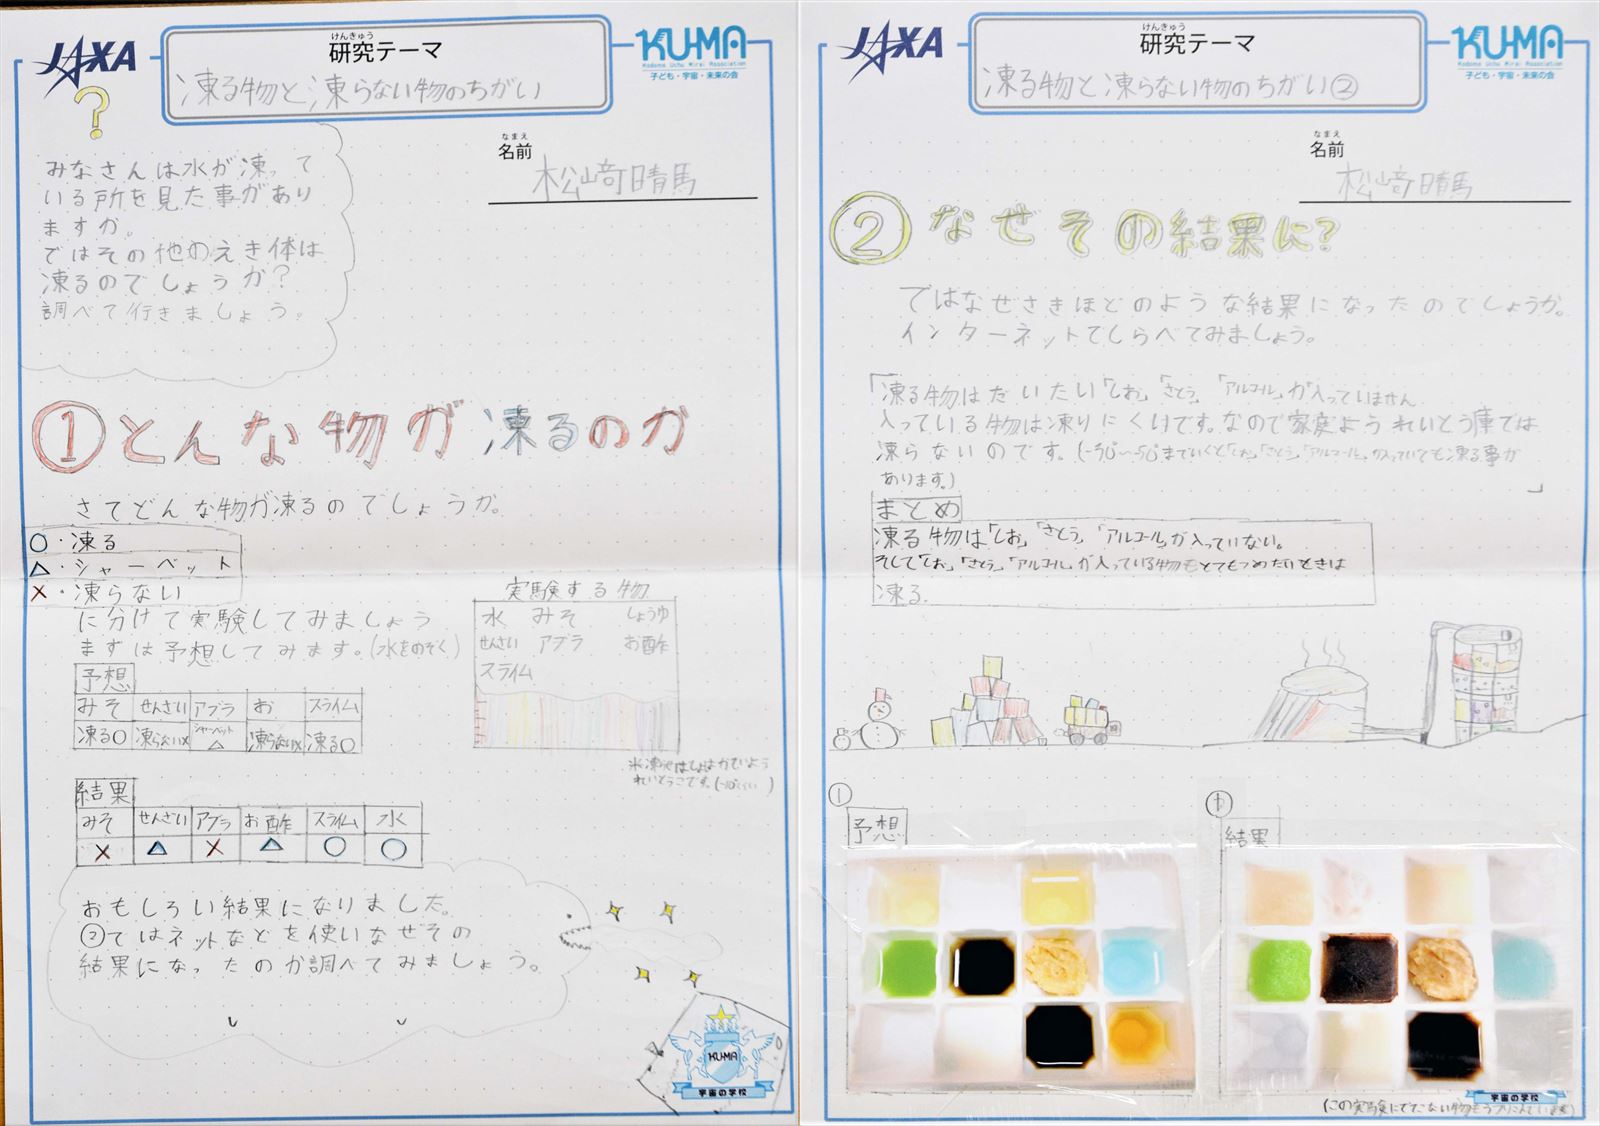 JAXA
けんきゅう
研究テーマ
凍る物と凍らない物のちがい
KU-MA
Kodomo Uchu Mirai Association
子ども・宇宙・未来の会
?
なまえ
名前
松崎晴馬
みなさんは水が凍って
いる所を見た事があり
ますか。
ではその他のえき体は
凍るのでしょうか?
調べて行きましょう。
①どんな物が凍るのか
さてどんな物が凍るのでしょうか。
○・凍る
△・シャーベット
×・凍らない
に分けて実験してみましょう
まずは予想してみます。(水をのぞく)
実験する物
水 みそ しょうゆ
せんざい アブラ お酢
スライム
予想
みそ せんざい アブラ お スライム
凍る○ 凍らない× シャーベット△ 凍らない× 凍る○
れいとうこです。
結果
みそ せんざい アブラ お酢 スライム 水
× △ × △ ○ ○
おもしろい結果になりました。
②ではネットなどを使いなぜその
結果になったのか調べてみましょう。
KU-MA
宇宙の学校
JAXA
けんきゅう
研究テーマ
凍る物と凍らない物のちがい②
KU-MA
Kodomo Uchu Mirai Association
子ども・宇宙・未来の会
なまえ
名前
松崎晴馬
②なぜその結果に?
ではなぜさきほどのような結果になったのでしょうか。
インターネットでしらべてみましょう。
「凍る物はだいたい「しお」「さとう」「アルコール」が入っていません
入っている物は凍りにくいです。なので家庭ようれいとう庫では
凍らないのです。(-30°~-50°までいくと「しお」「さとう」「アルコール」が入っていても凍る事が
あります。)」
まとめ
凍る物は「しお」「さとう」「アルコール」が入っていない。
そして「しお」「さとう」「アルコール」が入っている物もとてもつめたいときは
凍る。
①
予想
結果
宇宙の学校